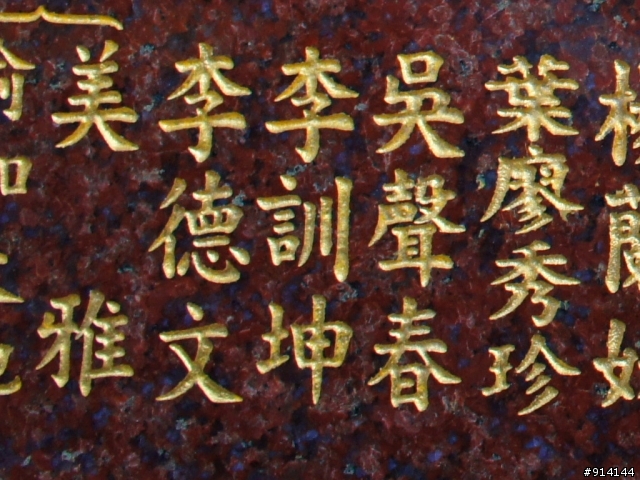 葉廖秀珍
吳聲春
李訓坤
李德文
美雅
#914144